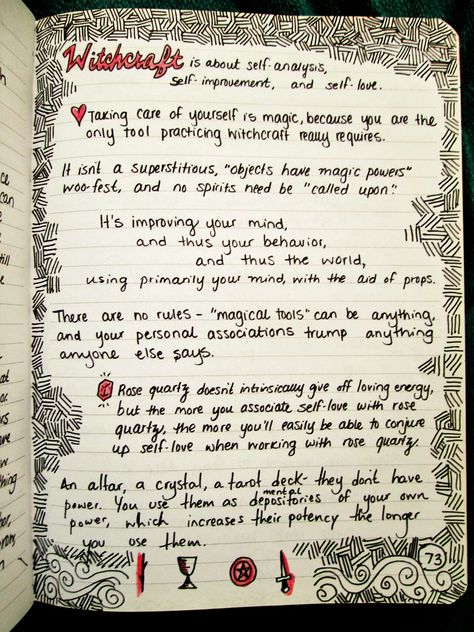 Witchcraft is about self-analysis,
self-improvement, and self-love.
Taking care of yourself is magic, because you are the
only tool practicing witchcraft really requires.
It isn't a superstitious, "objects have magic powers"
woo-fest, and no spirits need be "called upon".
It's improving your mind,
and thus your behavior,
and thus the world,
using primarily your mind, with the aid of props.
There are no rules - "magical tools" can be anything,
and your personal associations trump anything
anyone else says.
Rose quartz doesn't intrinsically give off loving energy,
but the more you associate self-love with rose
quartz, the more you'll easily be able to conjure
up self-love when working with rose quartz.
An altar, a crystal, a tarot deck- they don't have
power. You use them as mental depositories of your own
power, which increases their potency the longer
you use them.
73